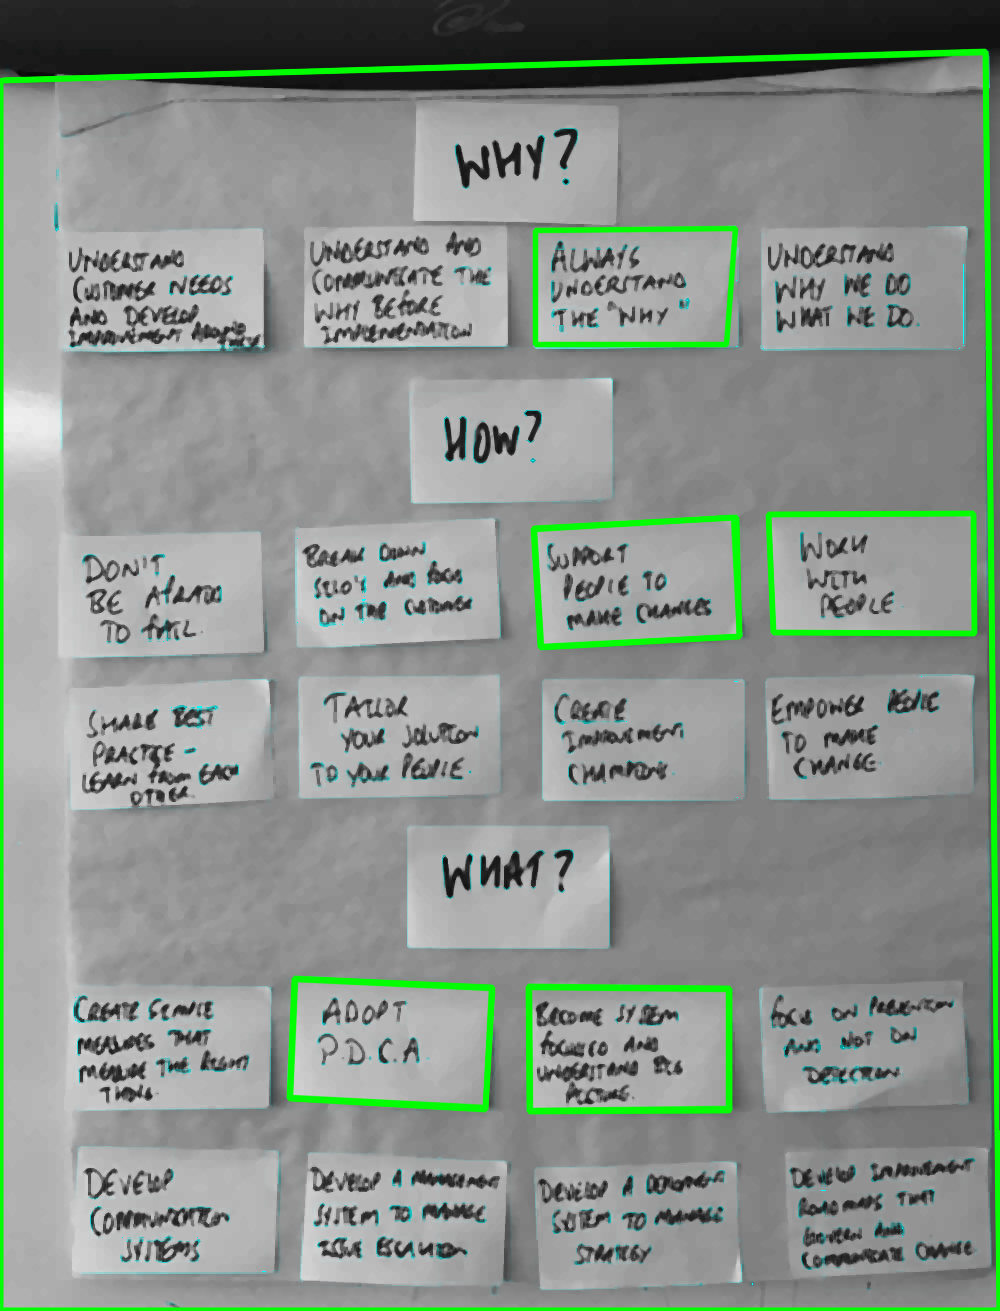 WHY?
UNDERSTAND
CUSTOMER NEEDS
AND DEVELOP
IMPROVEMENT AROUND
THESE
UNDERSTAND AND
COMMUNICATE THE
WHY BEFORE
IMPLEMENTATION
ALWAYS
UNDERSTAND
THE "WHY"
UNDERSTAND
WHY WE DO
WHAT WE DO.
HOW?
DON'T
BE AFRAID
TO FAIL.
BREAK DOWN
SILO'S AND FOCUS
ON THE CUSTOMER
SUPPORT
PEOPLE TO
MAKE CHANGES
WORK
WITH
PEOPLE
SHARE BEST
PRACTICE -
LEARN FROM EACH
OTHER.
TAILOR
YOUR SOLUTION
TO YOUR PEOPLE.
CREATE
IMPROVEMENT
CHAMPIONS.
EMPOWER PEOPLE
TO MAKE
CHANGE.
WHAT?
CREATE SIMPLE
MEASURES THAT
MEASURE THE RIGHT
THING.
ADOPT
P.D.C.A.
BECOME SYSTEM
FOCUSED AND
UNDERSTAND BIG
PICTURE.
FOCUS ON PREVENTION
AND NOT ON
DETECTION
DEVELOP
COMMUNICATION
SYSTEMS
DEVELOP A MANAGEMENT
SYSTEM TO MANAGE
ISSUE ESCALATION
DEVELOP A DEPLOYMENT
SYSTEM TO MANAGE
STRATEGY
DEVELOP IMPROVEMENT
ROADMAPS THAT
GOVERN AND
COMMUNICATE CHANGE.